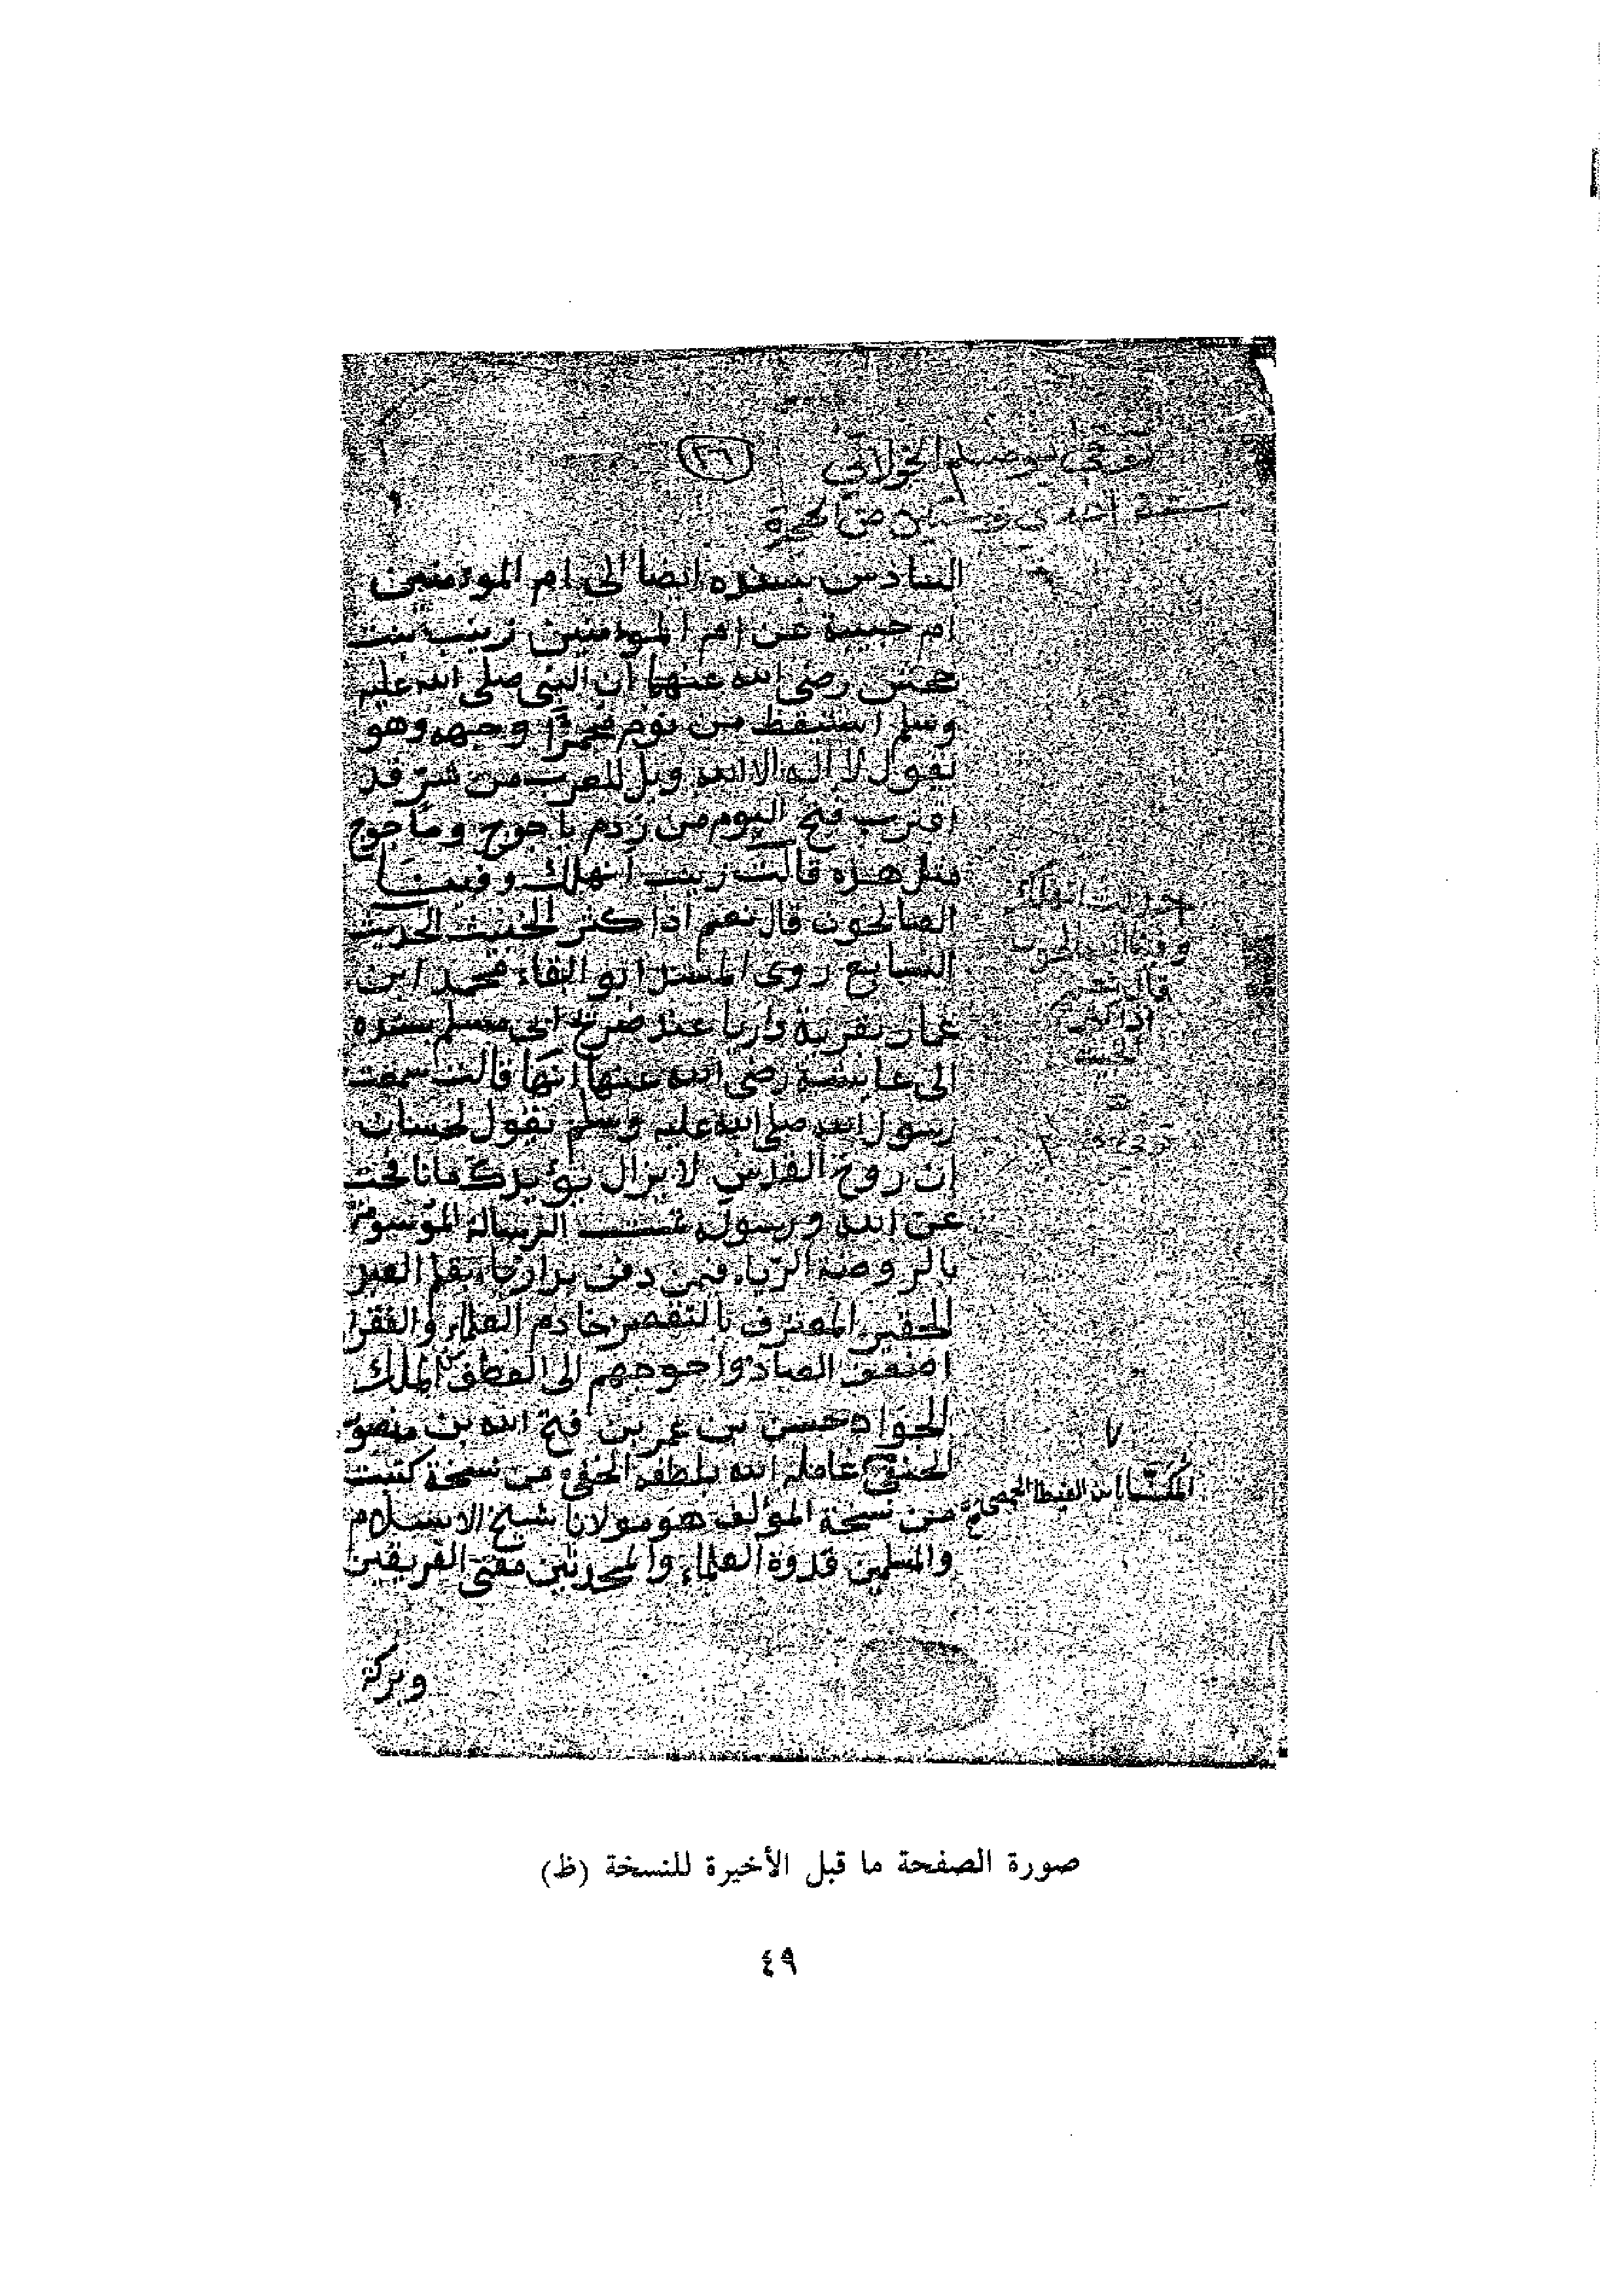 توفي ابو مسلم الخولاني
٢٦
سنة احدى وستين من الهجرة
السادس بسنده ايضا الى ام المؤمنين
ام حبيبة عن ام المومنين زينب بنت
جحش رضي الله عنها ان النبي صلى الله عليه
وسلم استيقظ من نوم محمرا وجهه وهو
يقول لا اله الا الله ويل للعرب من شر قد
اقترب فتح اليوم من ردم ياجوج وماجوج
مثل هذه قالت زينب انهلك وفينا
الصالحون قال نعم اذا كثر الخبث الحديث
السابع روى المسند ابو البقاء محمد ابن
عمار بقرية داريا عند ضريح ابي مسلم بسنده
الى عايشة رضي الله عنها انها قالت سمعت
رسول الله صلى الله عليه وسلم يقول لحسان
ان روح القدس لا يزال يؤيدك ما نافحت
عن الله ورسوله تمت الرسالة الموسومة
بالروضة الريا فيمن دفن بداريا بقلم العبد
الحقير المعترف بالتقصير خادم العلماء والفقرا
اضعف العباد واحوجهم الى لطف الملك
الجواد حسن بن عمر بن فتح الله بن منصور
الحنفي عامله الله بلطفه الخفي من نسخة كتبت
من نسخة المؤلف هو مولانا شيخ الاسلام
والمسلمين قدوة العلماء والمحدثين مفتي الفريقين
وبركة
انهلك
قال نعم
٧
صورة الصفحة ما قبل الأخيرة للنسخة (ظ)
٤٩